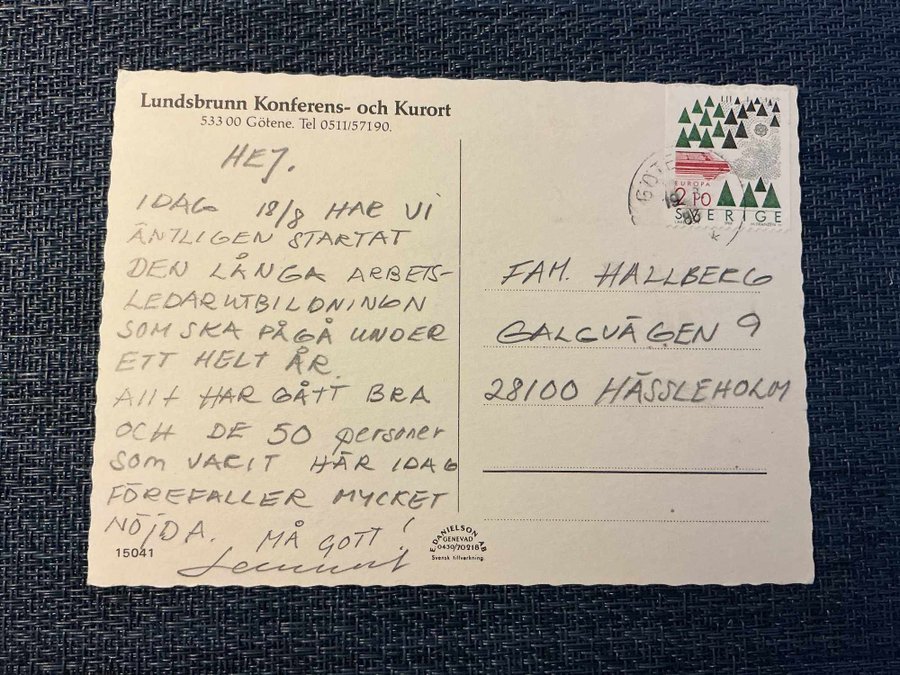 Lundsbrunn Konferens- och Kurort
533 00 Götene. Tel 0511/57190.
HEJ.
IDAG 18/8 HAR VI
ÄNTLIGEN STARTAT
DEN LÅNGA ARBETS-
LEDARUTBILDNINGN
SOM SKA PÅGÅ UNDER
ETT HELT ÅR.
Allt HAR GÅTT BRA
OCH DE 50 personer
som VARIT HÄR IDAG
FÖREFALLER MYCKET
NÖJDA. MÅ GOTT!
Lennart
15041
E. DANIELSON AB
GENEVAD
0430/70218
Svensk tillverkning.
EUROPA
2.10
SVERIGE
FAM. HALLBERG
GALGVÄGEN 9
28100 HÄSSLEHOLM